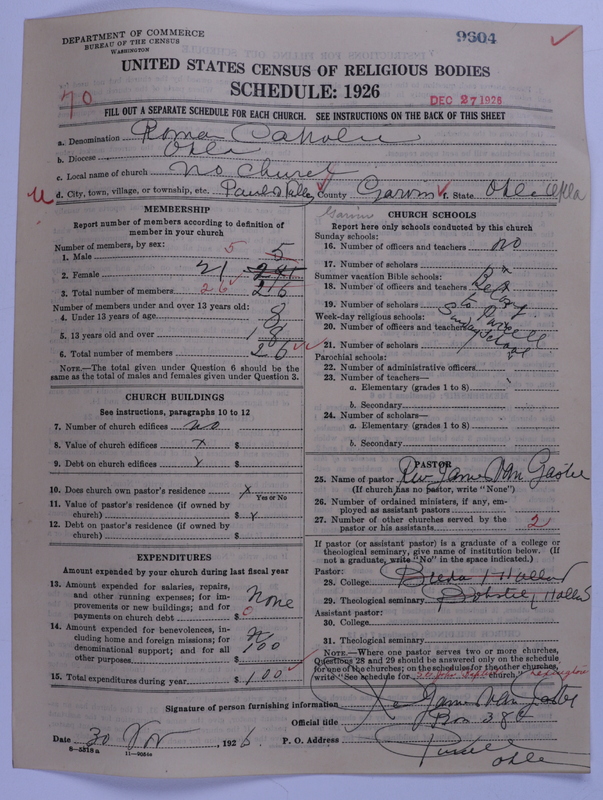 DEPARTMENT OF COMMERCE
BUREAU OF THE CENSUS
WASHINGTON
9604
UNITED STATES CENSUS OF RELIGIOUS BODIES
SCHEDULE: 1926
70
DEC 27 1926
FILL OUT A SEPARATE SCHEDULE FOR EACH CHURCH. SEE INSTRUCTIONS ON THE BACK OF THIS SHEET
a. Denomination Roman Catholic
b. Diocese Okla
c. Local name of church no church
d. City, town, village, or township, etc. Pauls Valley County Garvin f. State Okla
Garvin
MEMBERSHIP
Report number of members according to definition of member in your church
Number of members, by sex:
1. Male 5 5
2. Female 21
3. Total number of members 26 26
Number of members under and over 13 years old:
4. Under 13 years of age 8
5. 13 years old and over 18
6. Total number of members 26
NOTE.—The total given under Question 6 should be the same as the total of males and females given under Question 3.
CHURCH BUILDINGS
See instructions, paragraphs 10 to 12
7. Number of church edifices no
8. Value of church edifices x $
9. Debt on church edifices x $
10. Does church own pastor's residence x
Yes or No
11. Value of pastor's residence (if owned by church) $ x
12. Debt on pastor's residence (if owned by church) $
EXPENDITURES
Amount expended by your church during last fiscal year
13. Amount expended for salaries, repairs, and other running expenses; for improvements or new buildings; and for payments on church debt $ None 0
14. Amount expended for benevolences, including home and foreign missions; for denominational support; and for all other purposes $ 100
15. Total expenditures during year $ 100
CHURCH SCHOOLS
Report here only schools conducted by this church
Sunday schools:
16. Number of officers and teachers no
17. Number of scholars
Summer vacation Bible schools:
18. Number of officers and teachers
19. Number of scholars
Week-day religious schools:
20. Number of officers and teachers
21. Number of scholars
to Purcell
Sunday School
Parochial schools:
22. Number of administrative officers
23. Number of teachers—
a. Elementary (grades 1 to 8)
b. Secondary
24. Number of scholars—
a. Elementary (grades 1 to 8)
b. Secondary
PASTOR
25. Name of pastor Rev James Van
(If church has no pastor, write "None")
26. Number of ordained ministers, if any, employed as assistant pastors
27. Number of other churches served by the pastor or his assistants 2
If pastor (or assistant pastor) is a graduate of a college or theological seminary, give name of institution below. (If not a graduate, write "No" in the space indicated.)
Pastor:
28. College Breda Holland
29. Theological seminary Holland
Assistant pastor:
30. College
31. Theological seminary
NOTE.—Where one pastor serves two or more churches, Questions 28 and 29 should be answered only on the schedule for one of the churches; on the schedules for the other churches, write "See schedule for church." Lexington
Signature of person furnishing information James Van
Official title Box 386
Date 30 Nov, 1926 P. O. Address Purcell
Okla
8-5318a 11-9664a